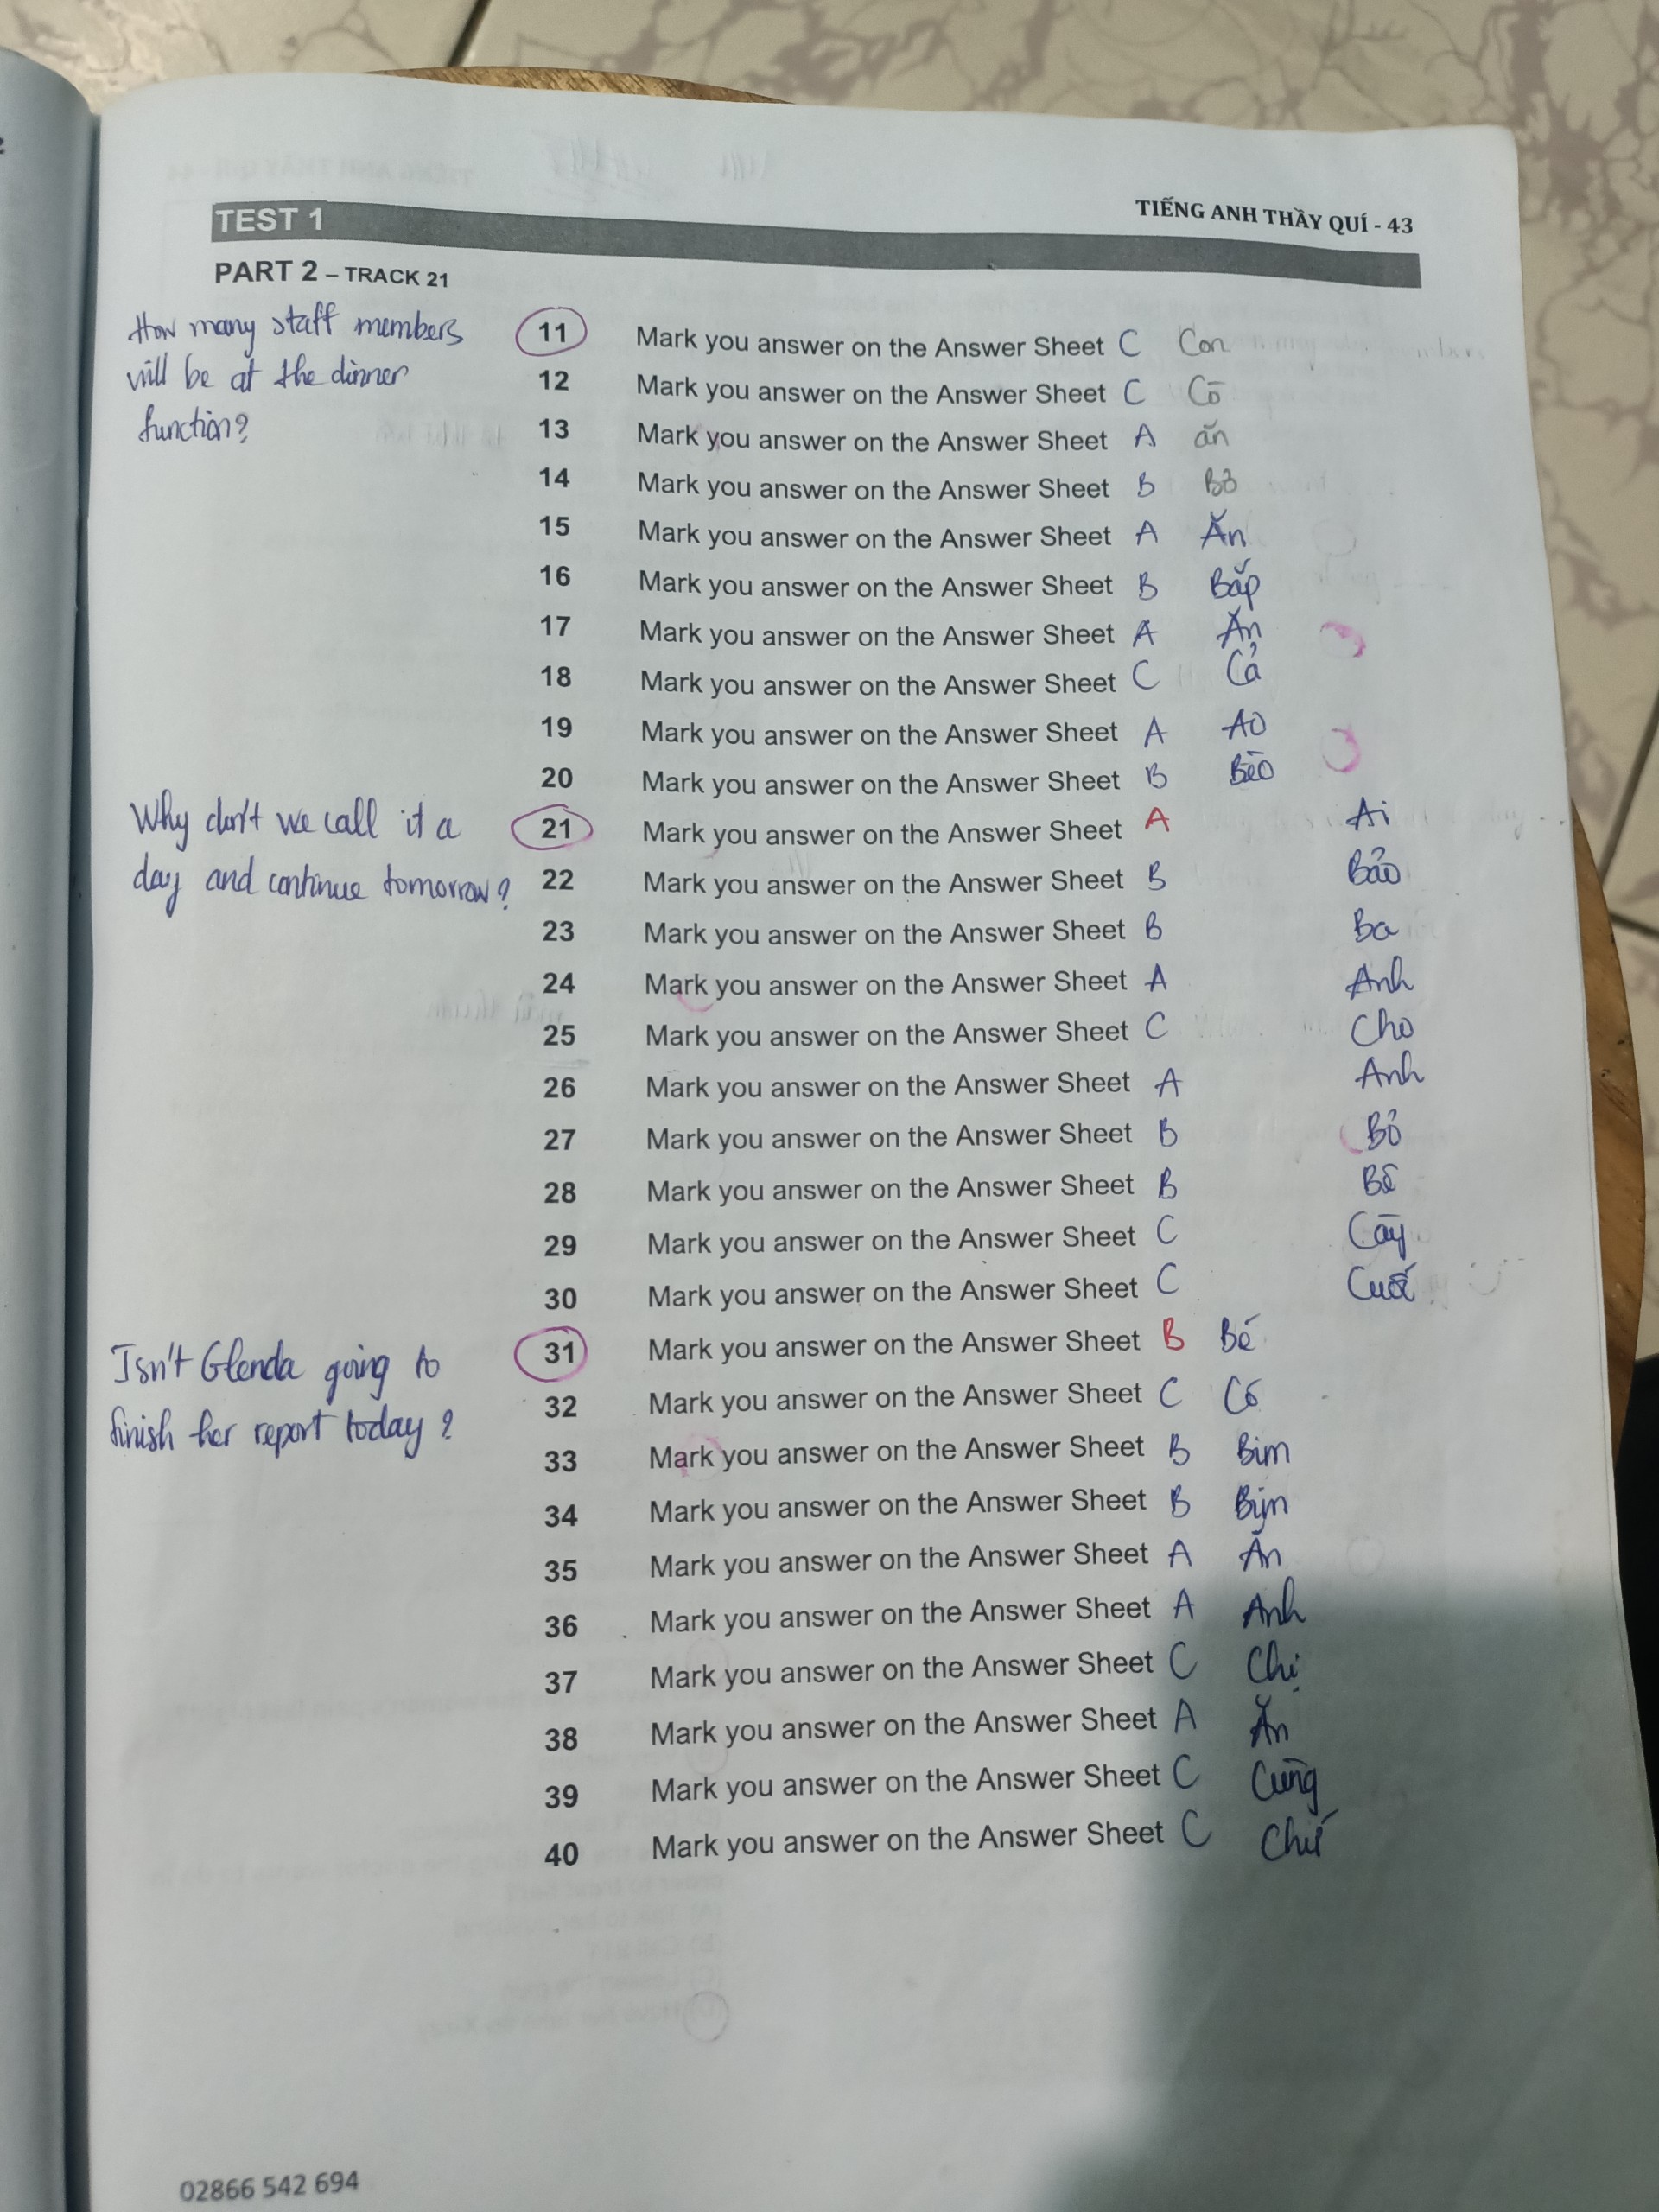 TIẾNG ANH THẦY QUÍ - 43
TEST 1
PART 2 – TRACK 21
How many staff members
will be at the dinner
function?
11 Mark you answer on the Answer Sheet C Con
12 Mark you answer on the Answer Sheet C
13 Mark you answer on the Answer Sheet A ăn
14 Mark you answer on the Answer Sheet B
15 Mark you answer on the Answer Sheet A Ăn
16 Mark you answer on the Answer Sheet B Bắp
17 Mark you answer on the Answer Sheet A Ăn
18 Mark you answer on the Answer Sheet C Cả
19 Mark you answer on the Answer Sheet A Ao
20 Mark you answer on the Answer Sheet B Bèo
Why don't we call it a
day and continue tomorrow?
21 Mark you answer on the Answer Sheet A Ai
22 Mark you answer on the Answer Sheet B Bảo
23 Mark you answer on the Answer Sheet B Ba
24 Mark you answer on the Answer Sheet A Anh
25 Mark you answer on the Answer Sheet C Cho
26 Mark you answer on the Answer Sheet A Anh
27 Mark you answer on the Answer Sheet B Bỏ
28 Mark you answer on the Answer Sheet B Bê
29 Mark you answer on the Answer Sheet C Cày
30 Mark you answer on the Answer Sheet C
Isn't Glenda going to
finish her report today?
31 Mark you answer on the Answer Sheet B Bé
32 Mark you answer on the Answer Sheet C Có
33 Mark you answer on the Answer Sheet B Bim
34 Mark you answer on the Answer Sheet B Bịn
35 Mark you answer on the Answer Sheet A Ăn
36 Mark you answer on the Answer Sheet A Anh
37 Mark you answer on the Answer Sheet C Chị
38 Mark you answer on the Answer Sheet A Ăn
39 Mark you answer on the Answer Sheet C Cùng
40 Mark you answer on the Answer Sheet C Chứ
02866 542 694